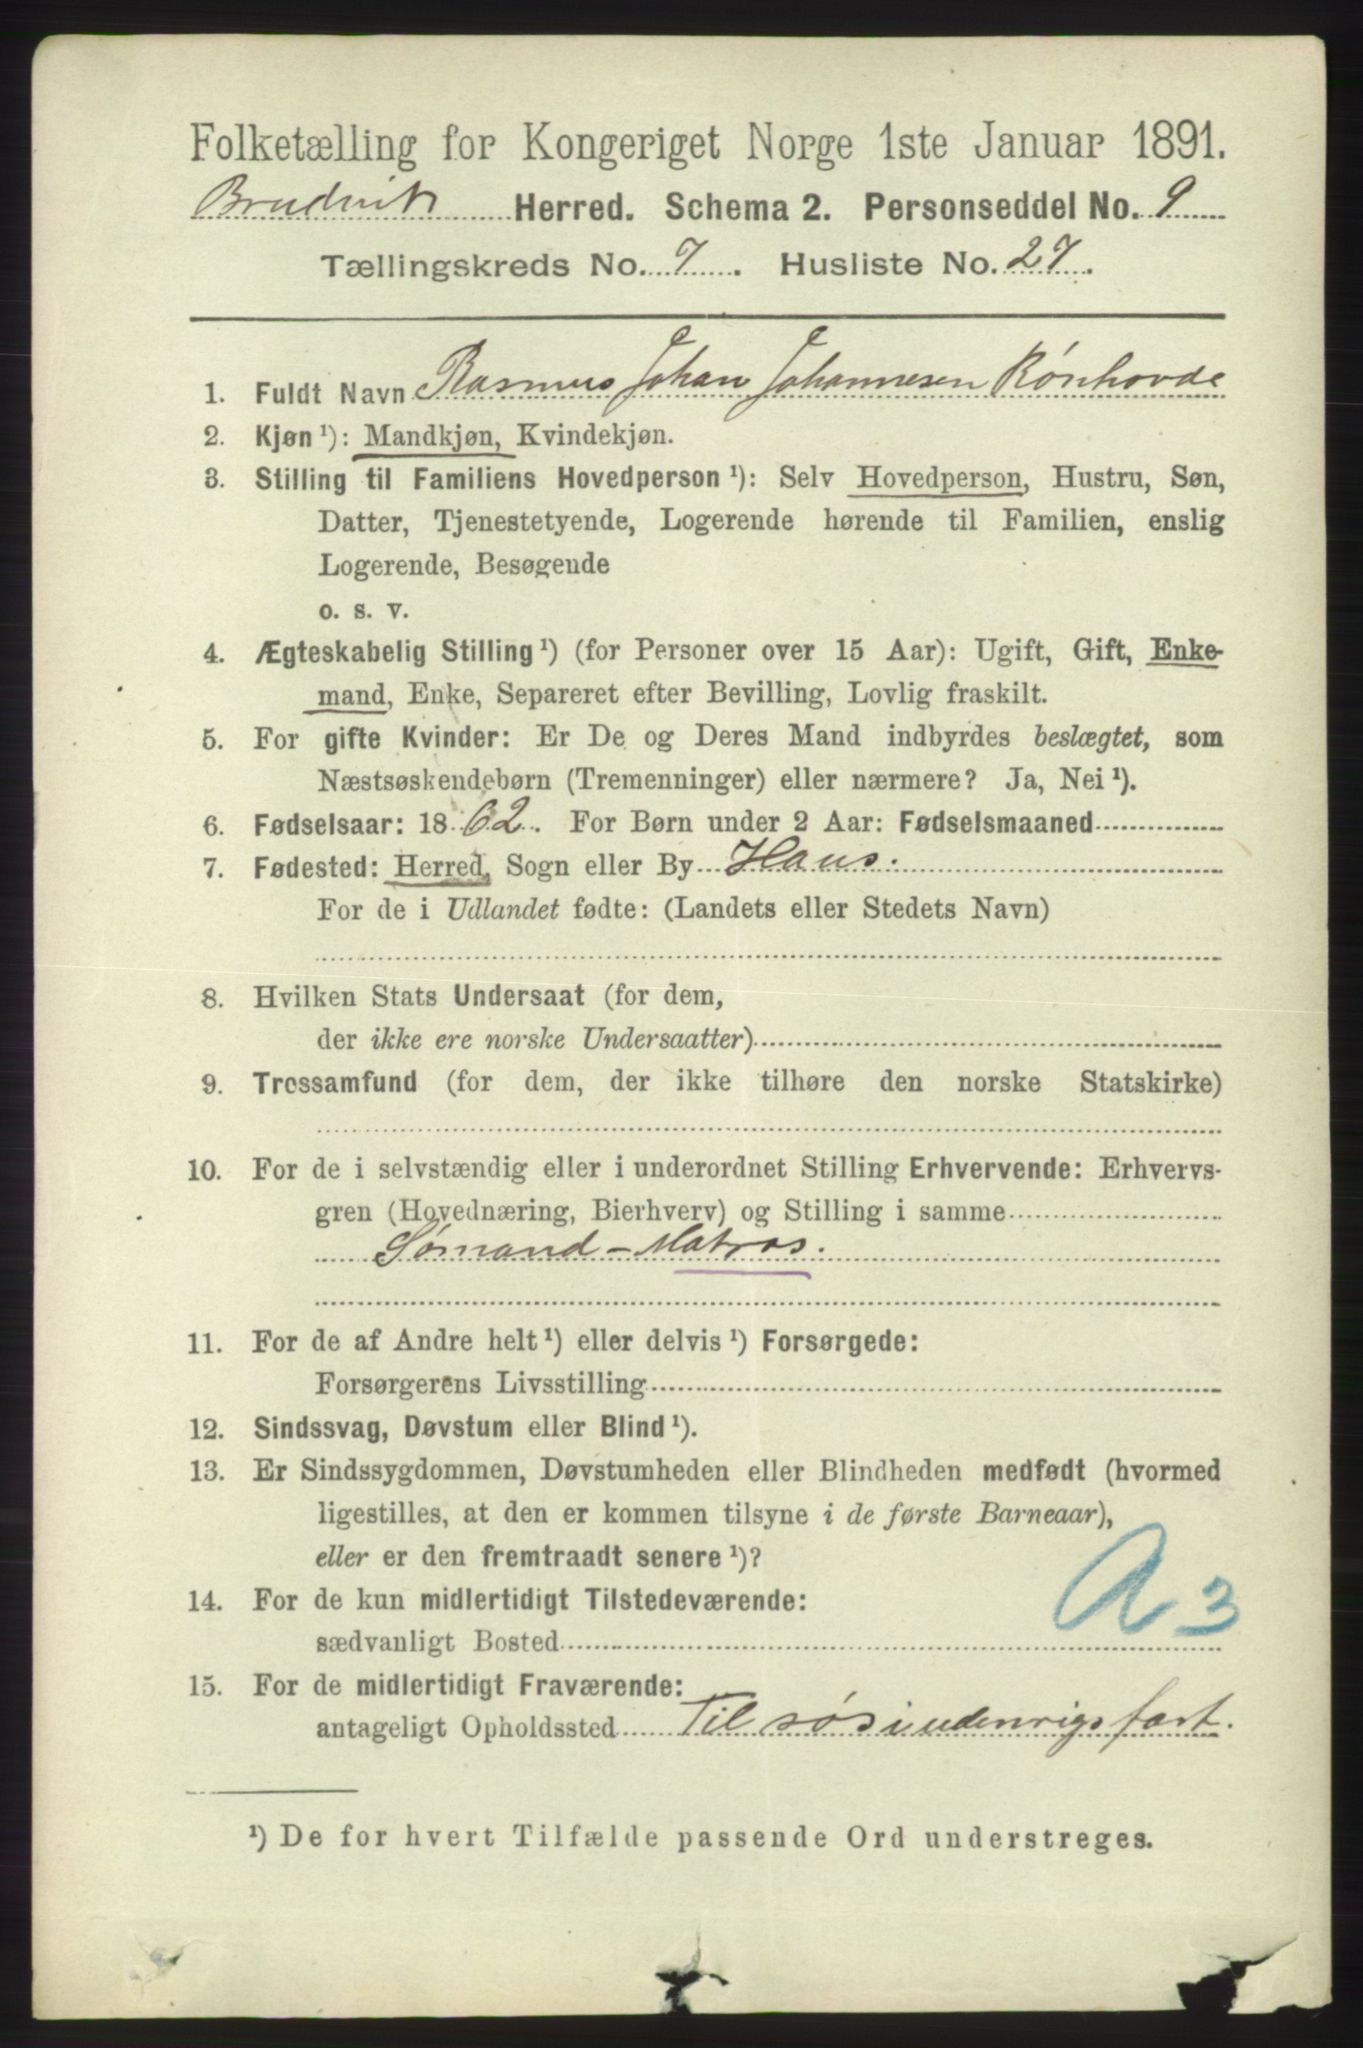 Folketælling for Kongeriget Norge 1ste Januar 1891.
Brudvik Herred. Schema 2. Personseddel No. 9
Tællingskreds No. 7. Husliste No. 27.
1. Fuldt Navn Rasmus Johan Johannesen Rønhovde
2. Kjøn ¹): Mandkjøn, Kvindekjøn.
3. Stilling til Familiens Hovedperson ¹): Selv Hovedperson, Hustru, Søn,
Datter, Tjenestetyende, Logerende hørende til Familien, enslig
Logerende, Besøgende
o. s. v.
4. Ægteskabelig Stilling ¹) (for Personer over 15 Aar): Ugift, Gift, Enke-
mand, Enke, Separeret efter Bevilling, Lovlig fraskilt.
5. For gifte Kvinder: Er De og Deres Mand indbyrdes beslægtet, som
Næstsøskendebørn (Tremenninger) eller nærmere? Ja, Nei ¹).
6. Fødselsaar: 1862. For Børn under 2 Aar: Fødselsmaaned
7. Fødested: Herred, Sogn eller By Haus.
For de i Udlandet fødte: (Landets eller Stedets Navn)
8. Hvilken Stats Undersaat (for dem,
der ikke ere norske Undersaatter)
9. Trossamfund (for dem, der ikke tilhøre den norske Statskirke)
10. For de i selvstændig eller i underordnet Stilling Erhvervende: Erhvervs-
gren (Hovednæring, Bierhverv) og Stilling i samme
Sømand - Matros.
11. For de af Andre helt ¹) eller delvis ¹) Forsørgede:
Forsørgerens Livsstilling
12. Sindssvag, Døvstum eller Blind ¹).
13. Er Sindssygdommen, Døvstumheden eller Blindheden medfødt (hvormed
ligestilles, at den er kommen tilsyne i de første Barneaar),
eller er den fremtraadt senere ¹)?
14. For de kun midlertidigt Tilstedeværende:
sædvanligt Bosted
A 3
15. For de midlertidigt Fraværende:
antageligt Opholdssted Til søs i udenrigs fart.
¹) De for hvert Tilfælde passende Ord understreges.